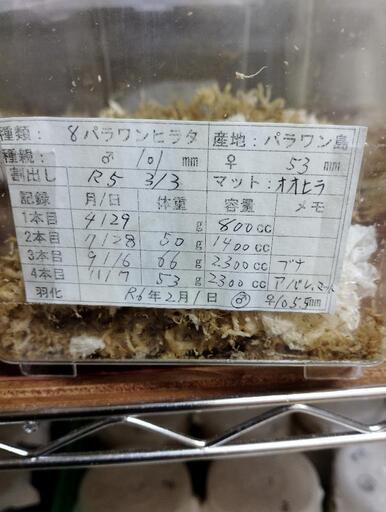 種類: 8パラワンヒラタ 産地: パラワン島
種親: ♂ 101 mm ♀ 53 mm
割出し R5 3/3 マット: オオヒラ
記録 月/日 体重 容量 メモ
1本目 4/29 g 800cc
2本目 7/28 50g 1400cc
3本目 9/16 66g 2300cc ブナ
4本目 11/7 53g 2300cc アバレ、マット
羽化 R6年2月1日 ♂/♀105.5mm